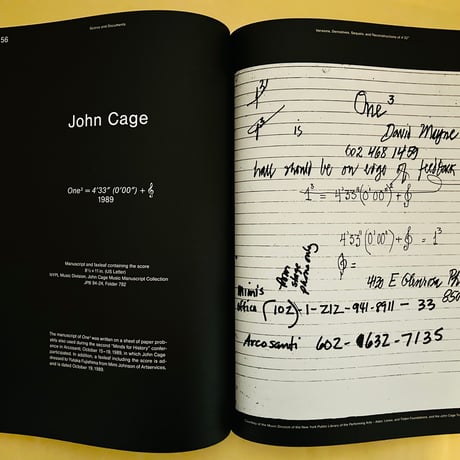 56
Scores and Documents
John Cage
One³ = 4′33″ (0′00″) + 𝄞
1989
Manuscript and faxleaf containing the score
8½ × 11 in. (US Letter)
NYPL Music Division, John Cage Music Manuscript Collection
JPB 94-24, Folder 782
The manuscript of One³ was written on a sheet of paper prob-
ably also used during the second “Minds for History” confer-
ence in Arcosanti, October 15–19, 1989, in which John Cage
participated. In addition, a faxleaf including the score is ad-
dressed to Yutaka Fujishima from Mimi Johnson of Artservices,
and is dated October 19, 1989.
Versions, Derivatives, Sequels, and Reconstructions of 4′33″
One³
is David Mayne
602 468 1459
hall should be on edge of feedback
1³ = 4′33″(0′00″) + 𝄞
4′33″(0′00″) + 𝄞 = 1³
𝄞 =
4130 E
phone only
Mimi's
office (102)-1-212-941-8911 - 33
Arcosanti 602-632-7135
Courtesy of the Music Division of the New York Public Library of the Performing Arts – Astor, Lenox, and Tilden Foundations, and the John Cage Trust